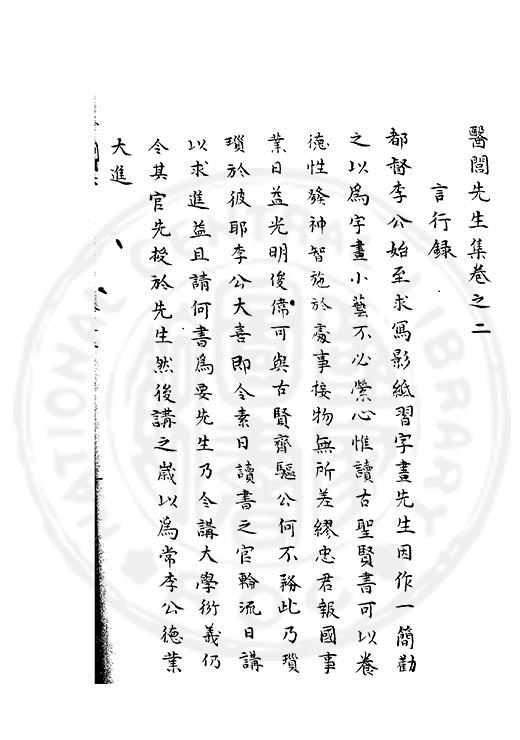 醫閭先生集卷之二
言行録
都督李公始至求寫影紙習字畫先生因作一簡勸
之以爲字畫小藝不必縈心惟讀古聖賢書可以養
德性發神智施於處事接物無所差繆忠君報國事
業日益光明俊偉可與古賢齊驅公何不務此乃瑣
瑣於彼耶李公大喜即令素日讀書之官輪流日講
以求進益且請何書爲要先生乃令講大學衍義仍
令其官先授於先生然後講之歲以爲常李公德業
大進